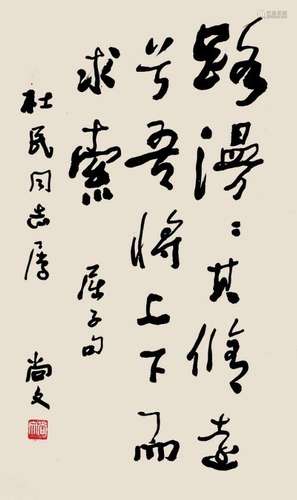 路漫〻其修远
兮吾将上下而
求索 屈子句
杜民同志属
尚文